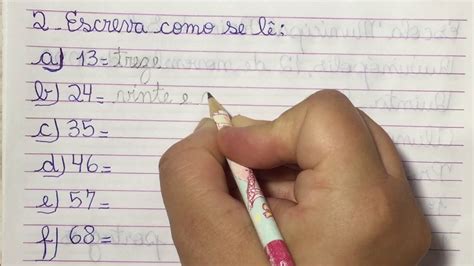 2. Escreva como se lê:
a) 13= treze
b) 24= vinte e
c) 35=
d) 46=
e) 57=
f) 68=